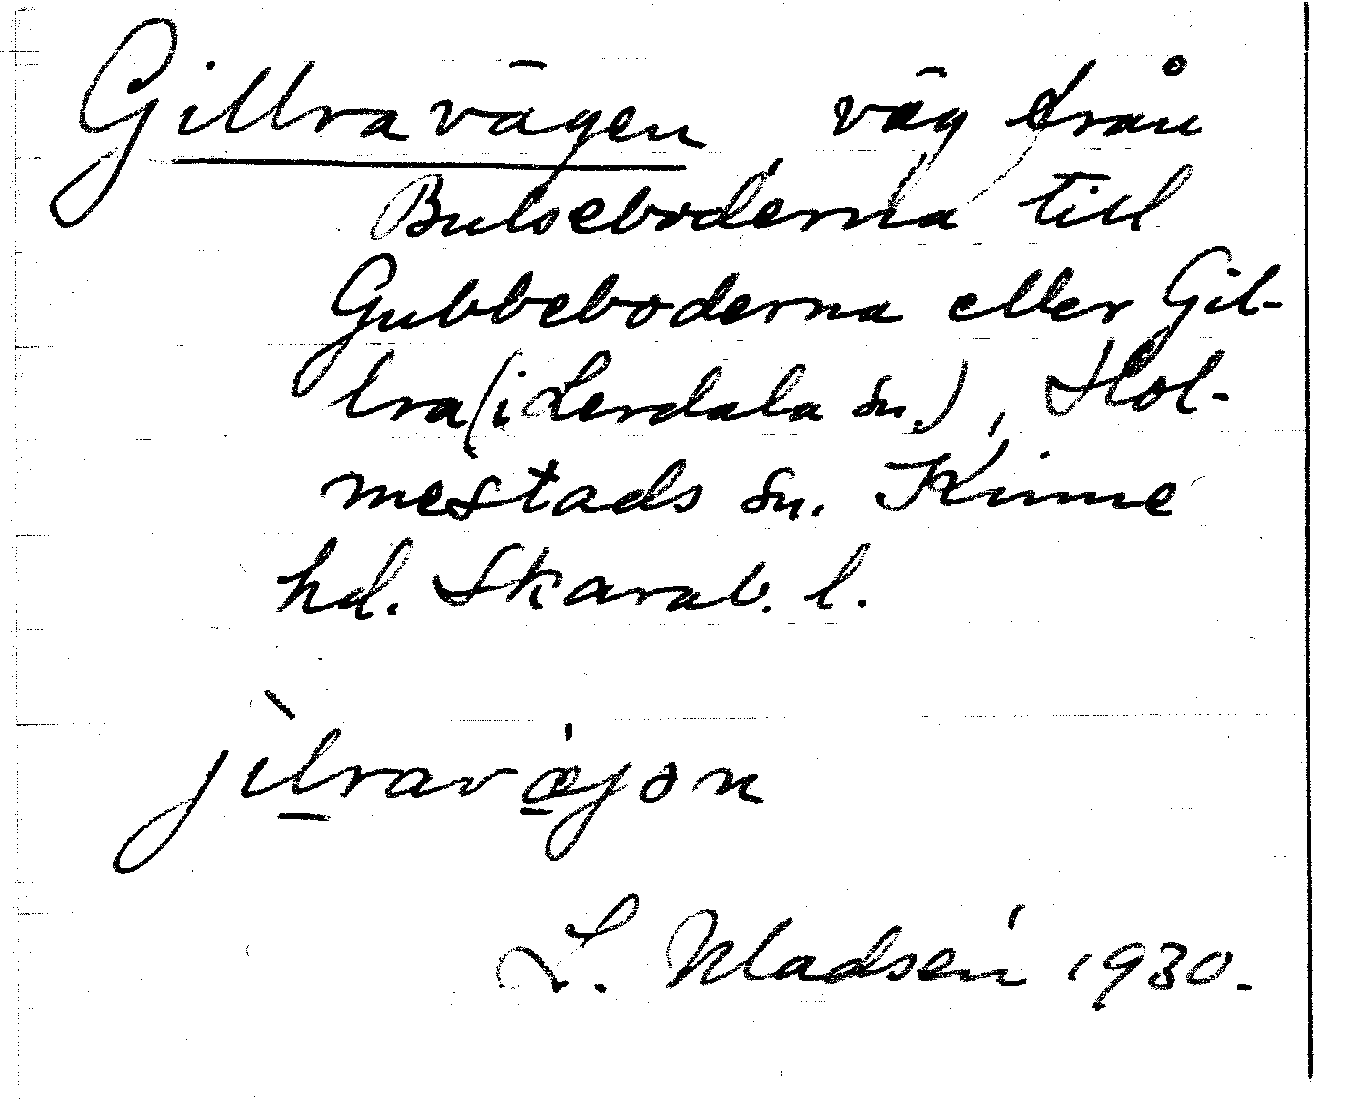 Gillravägen väg från
Bulseboderna till
Gubbeboderna eller Gil-
lra (i Lerdala sn.), Hol-
mestads sn. Kinne
hd. Skarab. l.
jìlravæ̍jən
L. Madsén 1930.